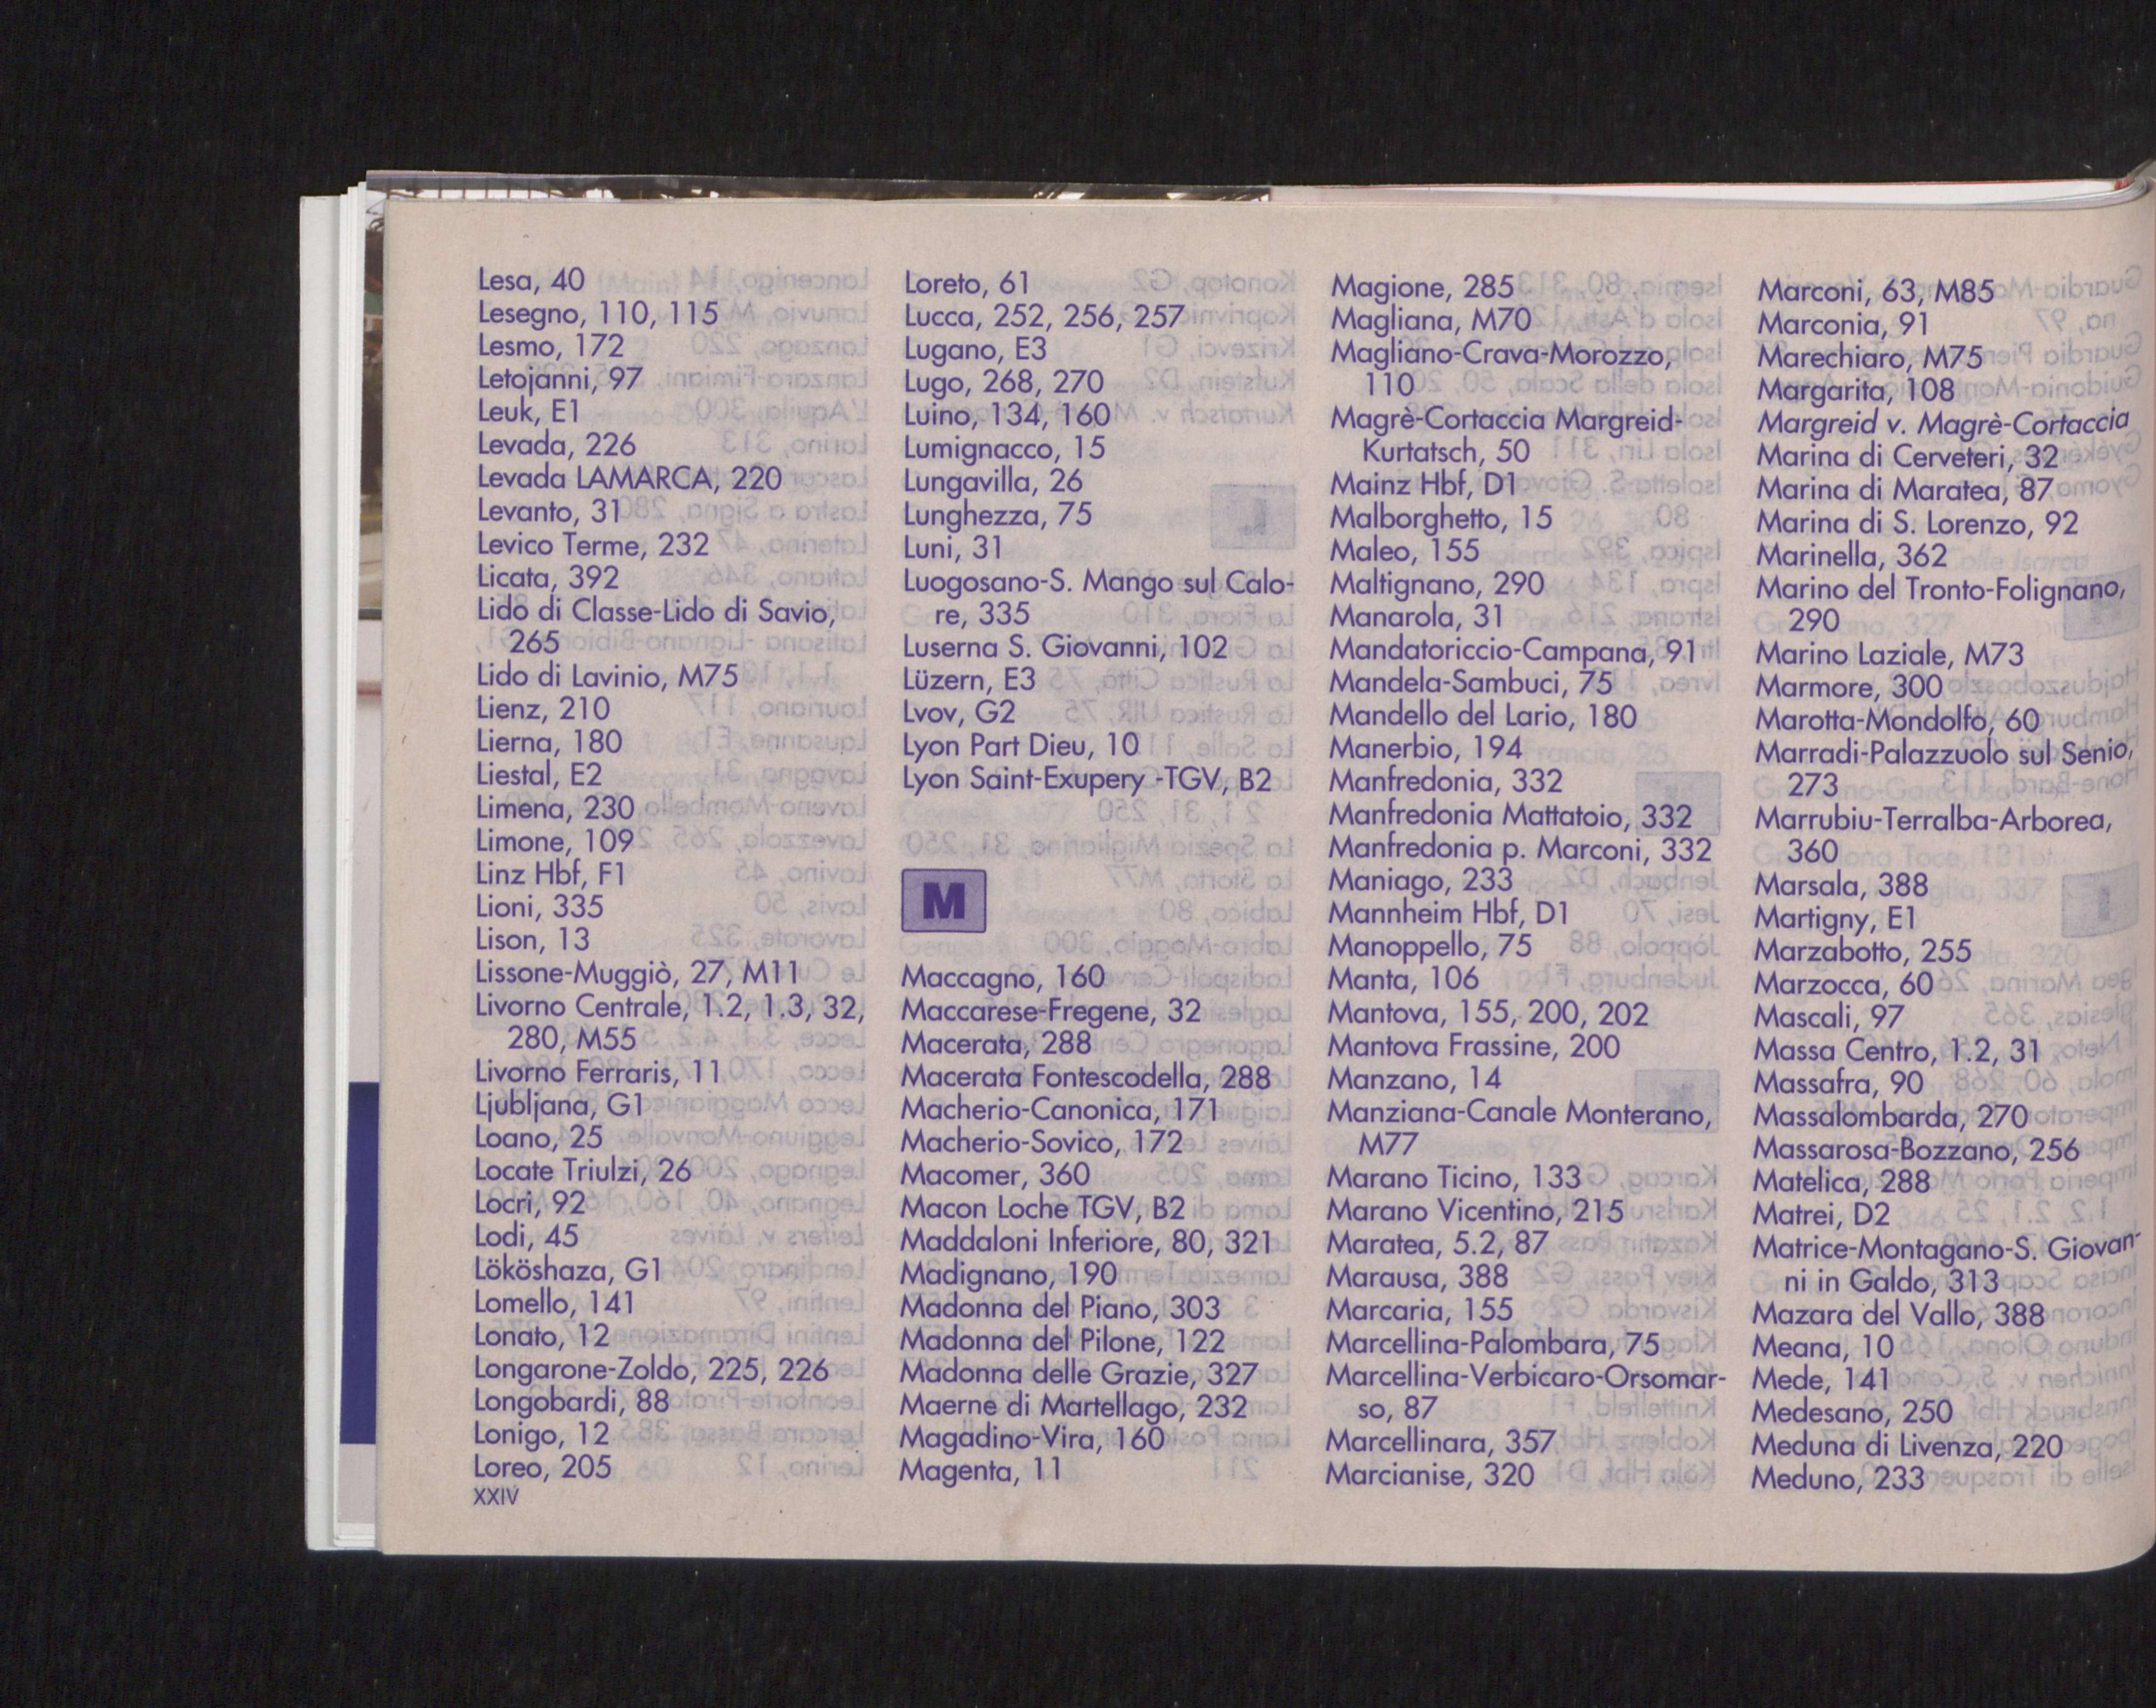 Lesa, 40
Lesegno, 110, 115
Lesmo, 172
Letojanni, 97
Leuk, E1
Levada, 226
Levada LAMARCA, 220
Levanto, 31
Levico Terme, 232
Licata, 392
Lido di Classe-Lido di Savio,
265
Lido di Lavinio, M75
Lienz, 210
Lierna, 180
Liestal, E2
Limena, 230
Limone, 109
Linz Hbf, F1
Lioni, 335
Lison, 13
Lissone-Muggiò, 27, M11
Livorno Centrale, 1.2, 1.3, 32,
280, M55
Livorno Ferraris, 11
Ljubljana, G1
Loano, 25
Locate Triulzi, 26
Locri, 92
Lodi, 45
Lököshaza, G1
Lomello, 141
Lonato, 12
Longarone-Zoldo, 225, 226
Longobardi, 88
Lonigo, 12
Loreo, 205
XXIV
Loreto, 61
Lucca, 252, 256, 257
Lugano, E3
Lugo, 268, 270
Luino, 134, 160
Lumignacco, 15
Lungavilla, 26
Lunghezza, 75
Luni, 31
Luogosano-S. Mango sul Calo-
re, 335
Luserna S. Giovanni, 102
Lüzern, E3
Lvov, G2
Lyon Part Dieu, 10
Lyon Saint-Exupery -TGV, B2
M
Maccagno, 160
Maccarese-Fregene, 32
Macerata, 288
Macerata Fontescodella, 288
Macherio-Canonica, 171
Macherio-Sovico, 172
Macomer, 360
Macon Loche TGV, B2
Maddaloni Inferiore, 80, 321
Madignano, 190
Madonna del Piano, 303
Madonna del Pilone, 122
Madonna delle Grazie, 327
Maerne di Martellago, 232
Magadino-Vira, 160
Magenta, 11
Magione, 285
Magliana, M70
Magliano-Crava-Morozzo,
110
Magrè-Cortaccia Margreid-
Kurtatsch, 50
Mainz Hbf, D1
Malborghetto, 15
Maleo, 155
Maltignano, 290
Manarola, 31
Mandatoriccio-Campana, 91
Mandela-Sambuci, 75
Mandello del Lario, 180
Manerbio, 194
Manfredonia, 332
Manfredonia Mattatoio, 332
Manfredonia p. Marconi, 332
Maniago, 233
Mannheim Hbf, D1
Manoppello, 75
Manta, 106
Mantova, 155, 200, 202
Mantova Frassine, 200
Manzano, 14
Manziana-Canale Monterano,
M77
Marano Ticino, 133
Marano Vicentino, 215
Maratea, 5.2, 87
Marausa, 388
Marcaria, 155
Marcellina-Palombara, 75
Marcellina-Verbicaro-Orsomar-
so, 87
Marcellinara, 357
Marcianise, 320
Marconi, 63, M85
Marconia, 91
Marechiaro, M75
Margarita, 108
Margreid v. Magrè-Cortaccia
Marina di Cerveteri, 32
Marina di Maratea, 87
Marina di S. Lorenzo, 92
Marinella, 362
Marino del Tronto-Folignano,
290
Marino Laziale, M73
Marmore, 300
Marotta-Mondolfo, 60
Marradi-Palazzuolo sul Senio,
273
Marrubiu-Terralba-Arborea,
360
Marsala, 388
Martigny, E1
Marzabotto, 255
Marzocca, 60
Mascali, 97
Massa Centro, 1.2, 31
Massafra, 90
Massalombarda, 270
Massarosa-Bozzano, 256
Matelica, 288
Matrei, D2
Matrice-Montagano-S. Giovan-
ni in Galdo, 313
Mazara del Vallo, 388
Meana, 10
Mede, 141
Medesano, 250
Meduna di Livenza, 220
Meduno, 233